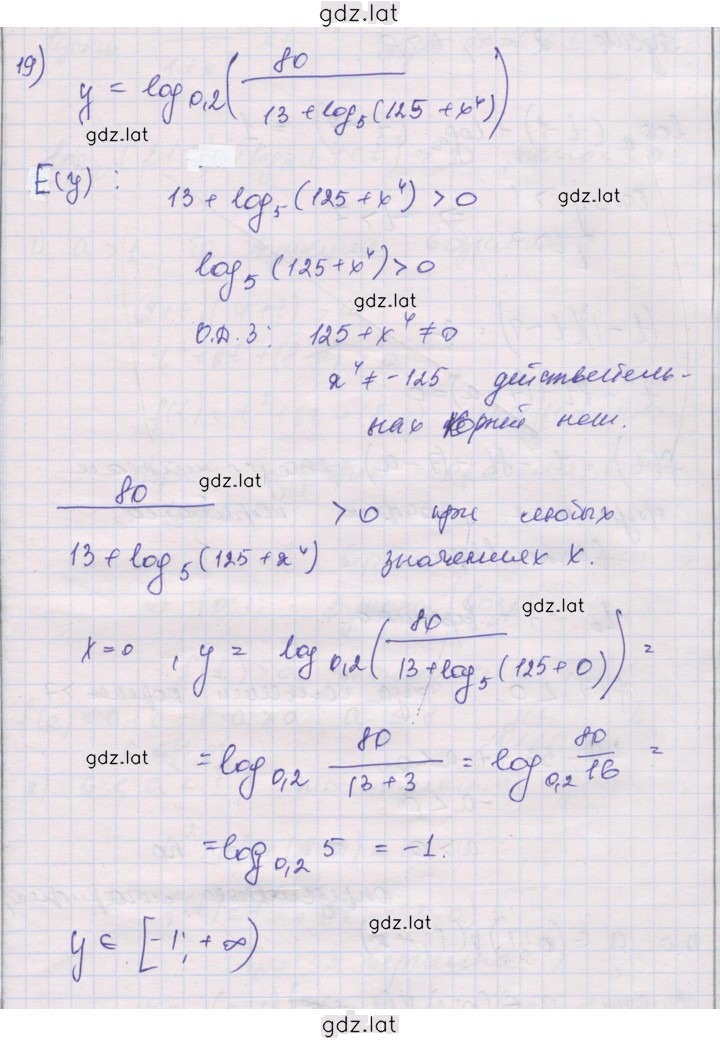 gdz.lat
19)
y = log₀,₂(80 / (13 + log₅(125 + x⁴)))
gdz.lat
E(y) :
13 + log₅(125 + x⁴) > 0
gdz.lat
log₅(125 + x⁴) > 0
gdz.lat
О.Д.З: 125 + x⁴ ≠ 0
x⁴ ≠ -125 действитель-
ных корней нет.
gdz.lat
80 / (13 + log₅(125 + x⁴)) > 0 при любых
значениях x.
gdz.lat
x = 0 , y = log₀,₂(80 / (13 + log₅(125 + 0))) =
gdz.lat
= log₀,₂ 80 / (13 + 3) = log₀,₂ 80/16 =
= log₀,₂ 5 = -1.
gdz.lat
y ∈ [-1; +∞)
gdz.lat